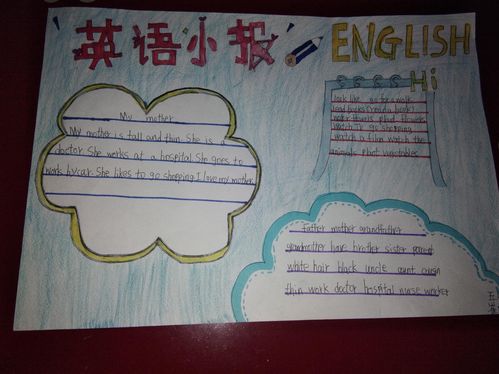 英语小报
ENGLISH
Hi
My mother
My mother is tall and thin. She is a
doctor. She works at a hospital. She goes to
work by car. She likes to go shopping. I love my mother
look like go for a walk
read books (read a book)
plant flowers
watch TV go shopping
watch a film watch the
animals plant vegetables
father mother grandfather
grandmother have brother sister parent
white hair black uncle aunt cousin
thin work doctor hospital nurse worker